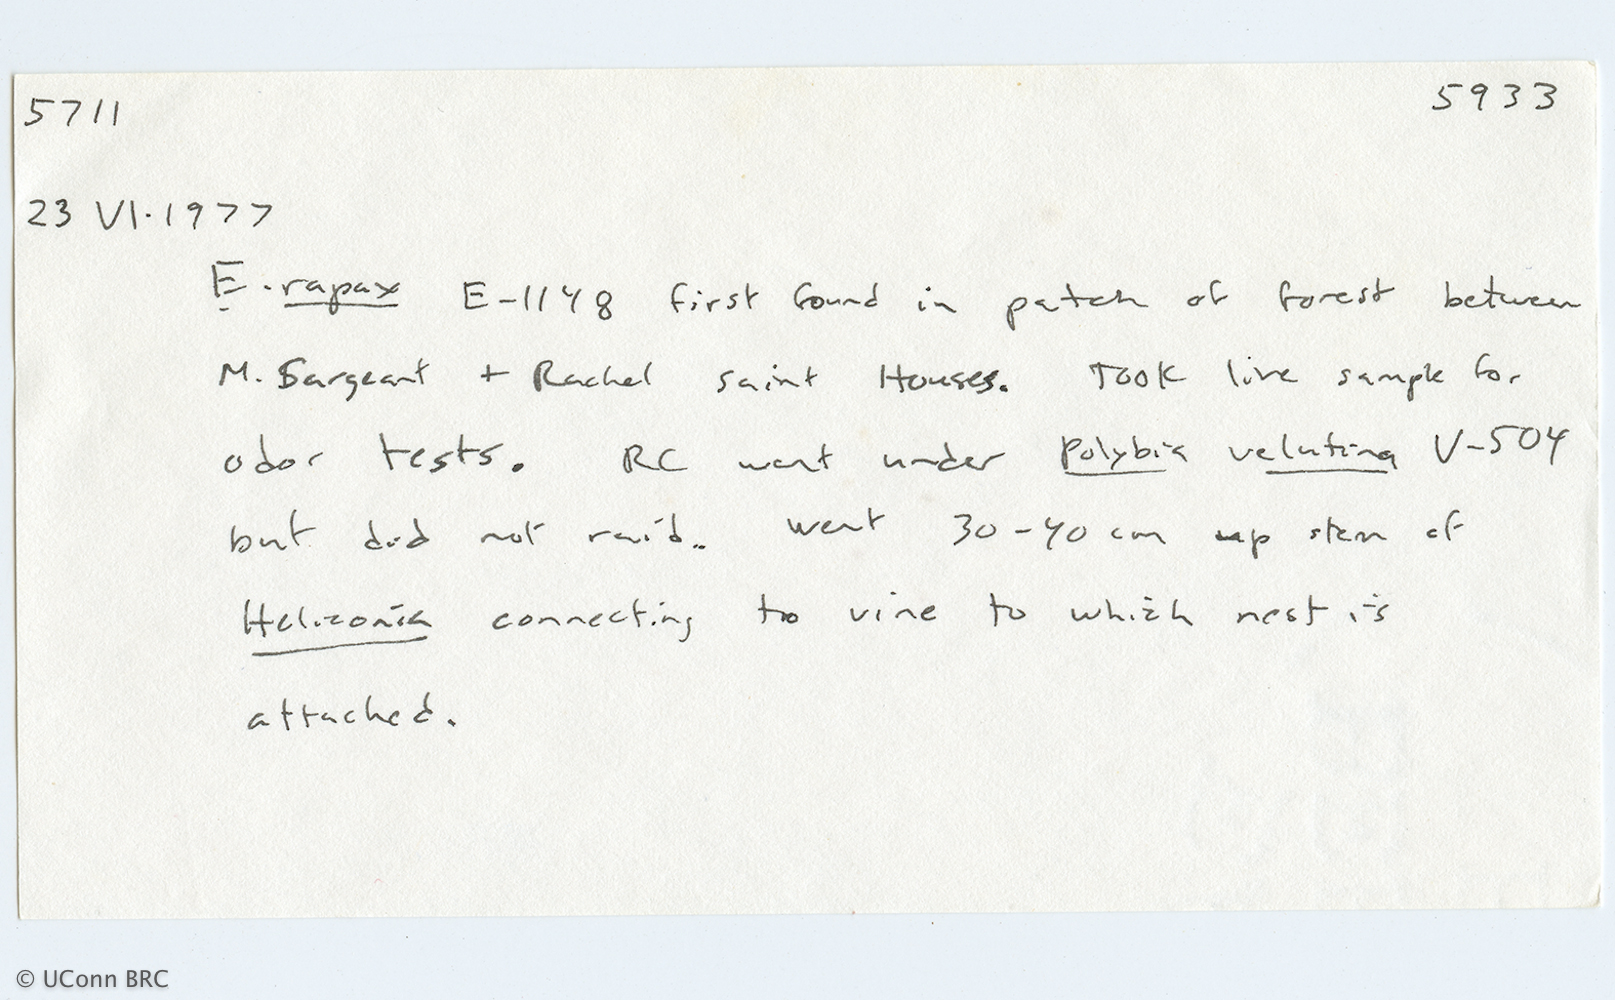 5711 5933
23 VI·1977
E. rapax E-1148 first found in patch of forest between
M. Sargeant + Rachel Saint Houses. Took live sample for
odor tests. RC went under Polybia velutina V-504
but did not raid. Went 30-40 cm up stem of
Heliconia connecting to vine to which nest is
attached.
© UConn BRC